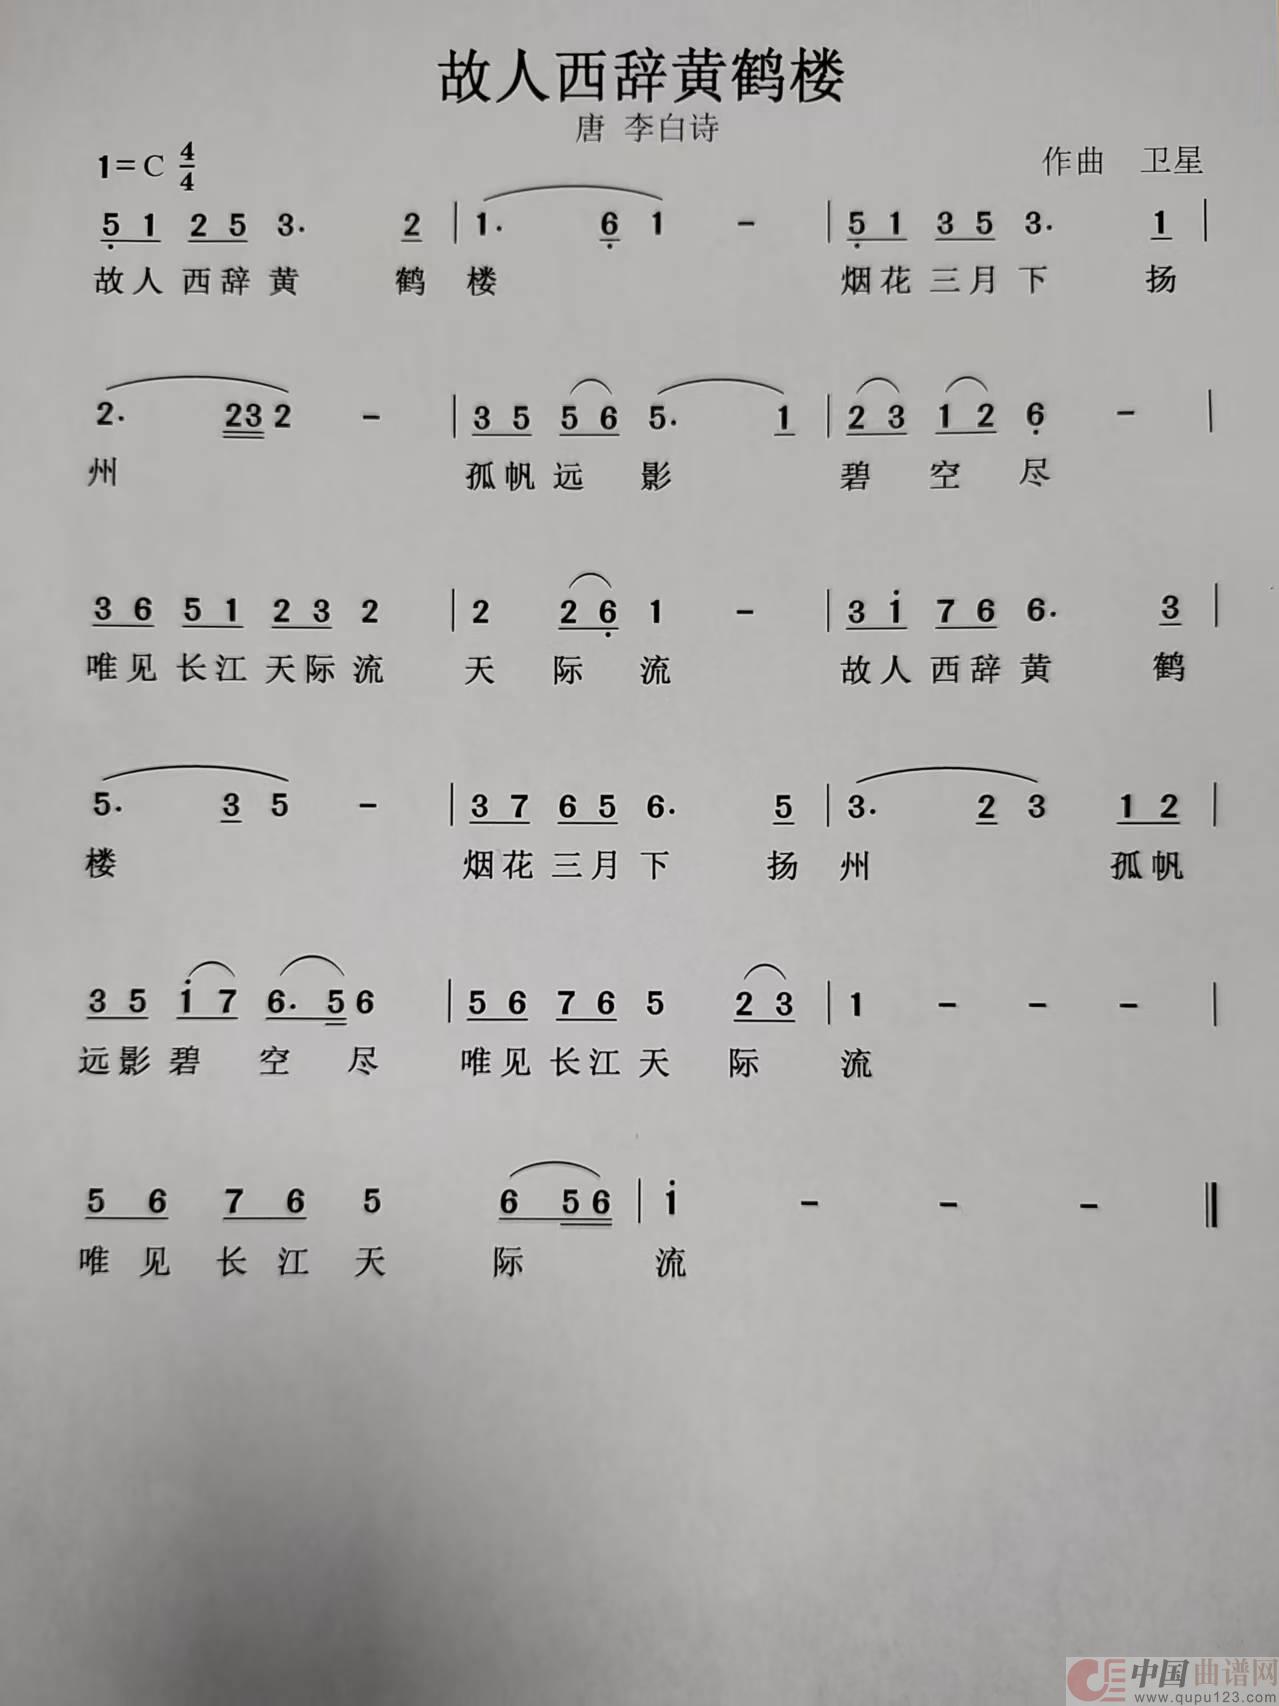 故人西辞黄鹤楼
唐 李白诗
1=C 4/4
作曲 卫星
5 1 2 5 3. 2 | 1. 6 1 - | 5 1 3 5 3. 1 |
故人 西辞 黄 鹤 楼 烟花 三月 下 扬
2. 23 2 - | 3 5 5 6 5. 1 | 2 3 1 2 6 - |
州 孤帆 远 影 碧 空 尽
3 6 5 1 2 3 2 | 2 2 6 1 - | 3 i 7 6 6. 3 |
唯见 长江 天际 流 天 际 流 故人 西辞 黄 鹤
5. 3 5 - | 3 7 6 5 6. 5 | 3. 2 3 1 2 |
楼 烟花 三月 下 扬 州 孤帆
3 5 i 7 6. 5 6 | 5 6 7 6 5 2 3 | 1 - - - |
远影 碧 空 尽 唯见 长江 天 际 流
5 6 7 6 5 6 56 | i - - - ‖
唯 见 长 江 天 际 流
中国曲谱网
www.qupu123.com